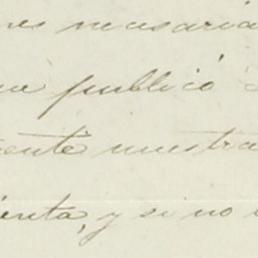 nes necesaria
publicó
ente nuestra
enta, y si no